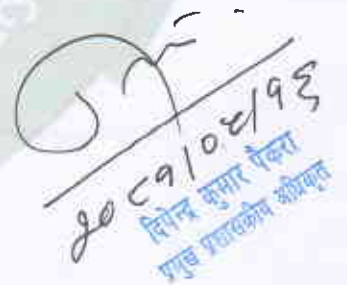 २०८१।०४।१६
दिपेन्द्र कुमार पैकरा
प्रमुख प्रशासकीय अधिकृत